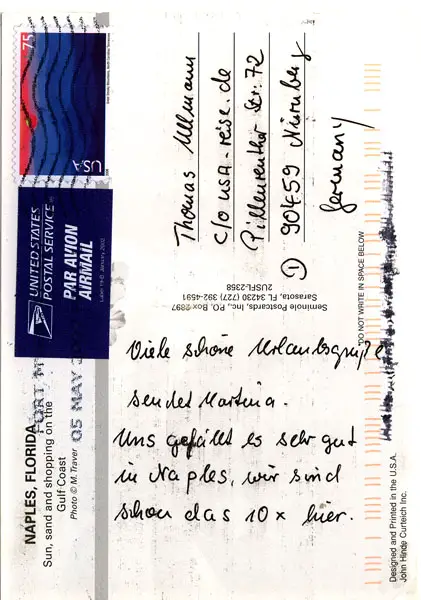 NAPLES, FLORIDA
Sun, sand and shopping on the
Gulf Coast
Photo © M. Traver
FORT M
05 MAY
UNITED STATES
POSTAL SERVICE
PAR AVION
AIRMAIL
Label 19-B January 2002
75
USA
Viele schöne Urlaubsgrüße
sendet Martina.
Uns gefällt es sehr gut
in Naples, wir sind
schon das 10x hier.
Seminole Postcards, Inc., P.O. Box
Sarasota, FL 34230 (727) 392-4591
2USFL-2358
Thomas Ullmann
c/o usa-reise.de
Pillenreuther Str. 72
90459 Nürnberg
Germany
DO NOT WRITE IN SPACE BELOW
Designed and Printed in the U.S.A.
John Hinde Curteich Inc.